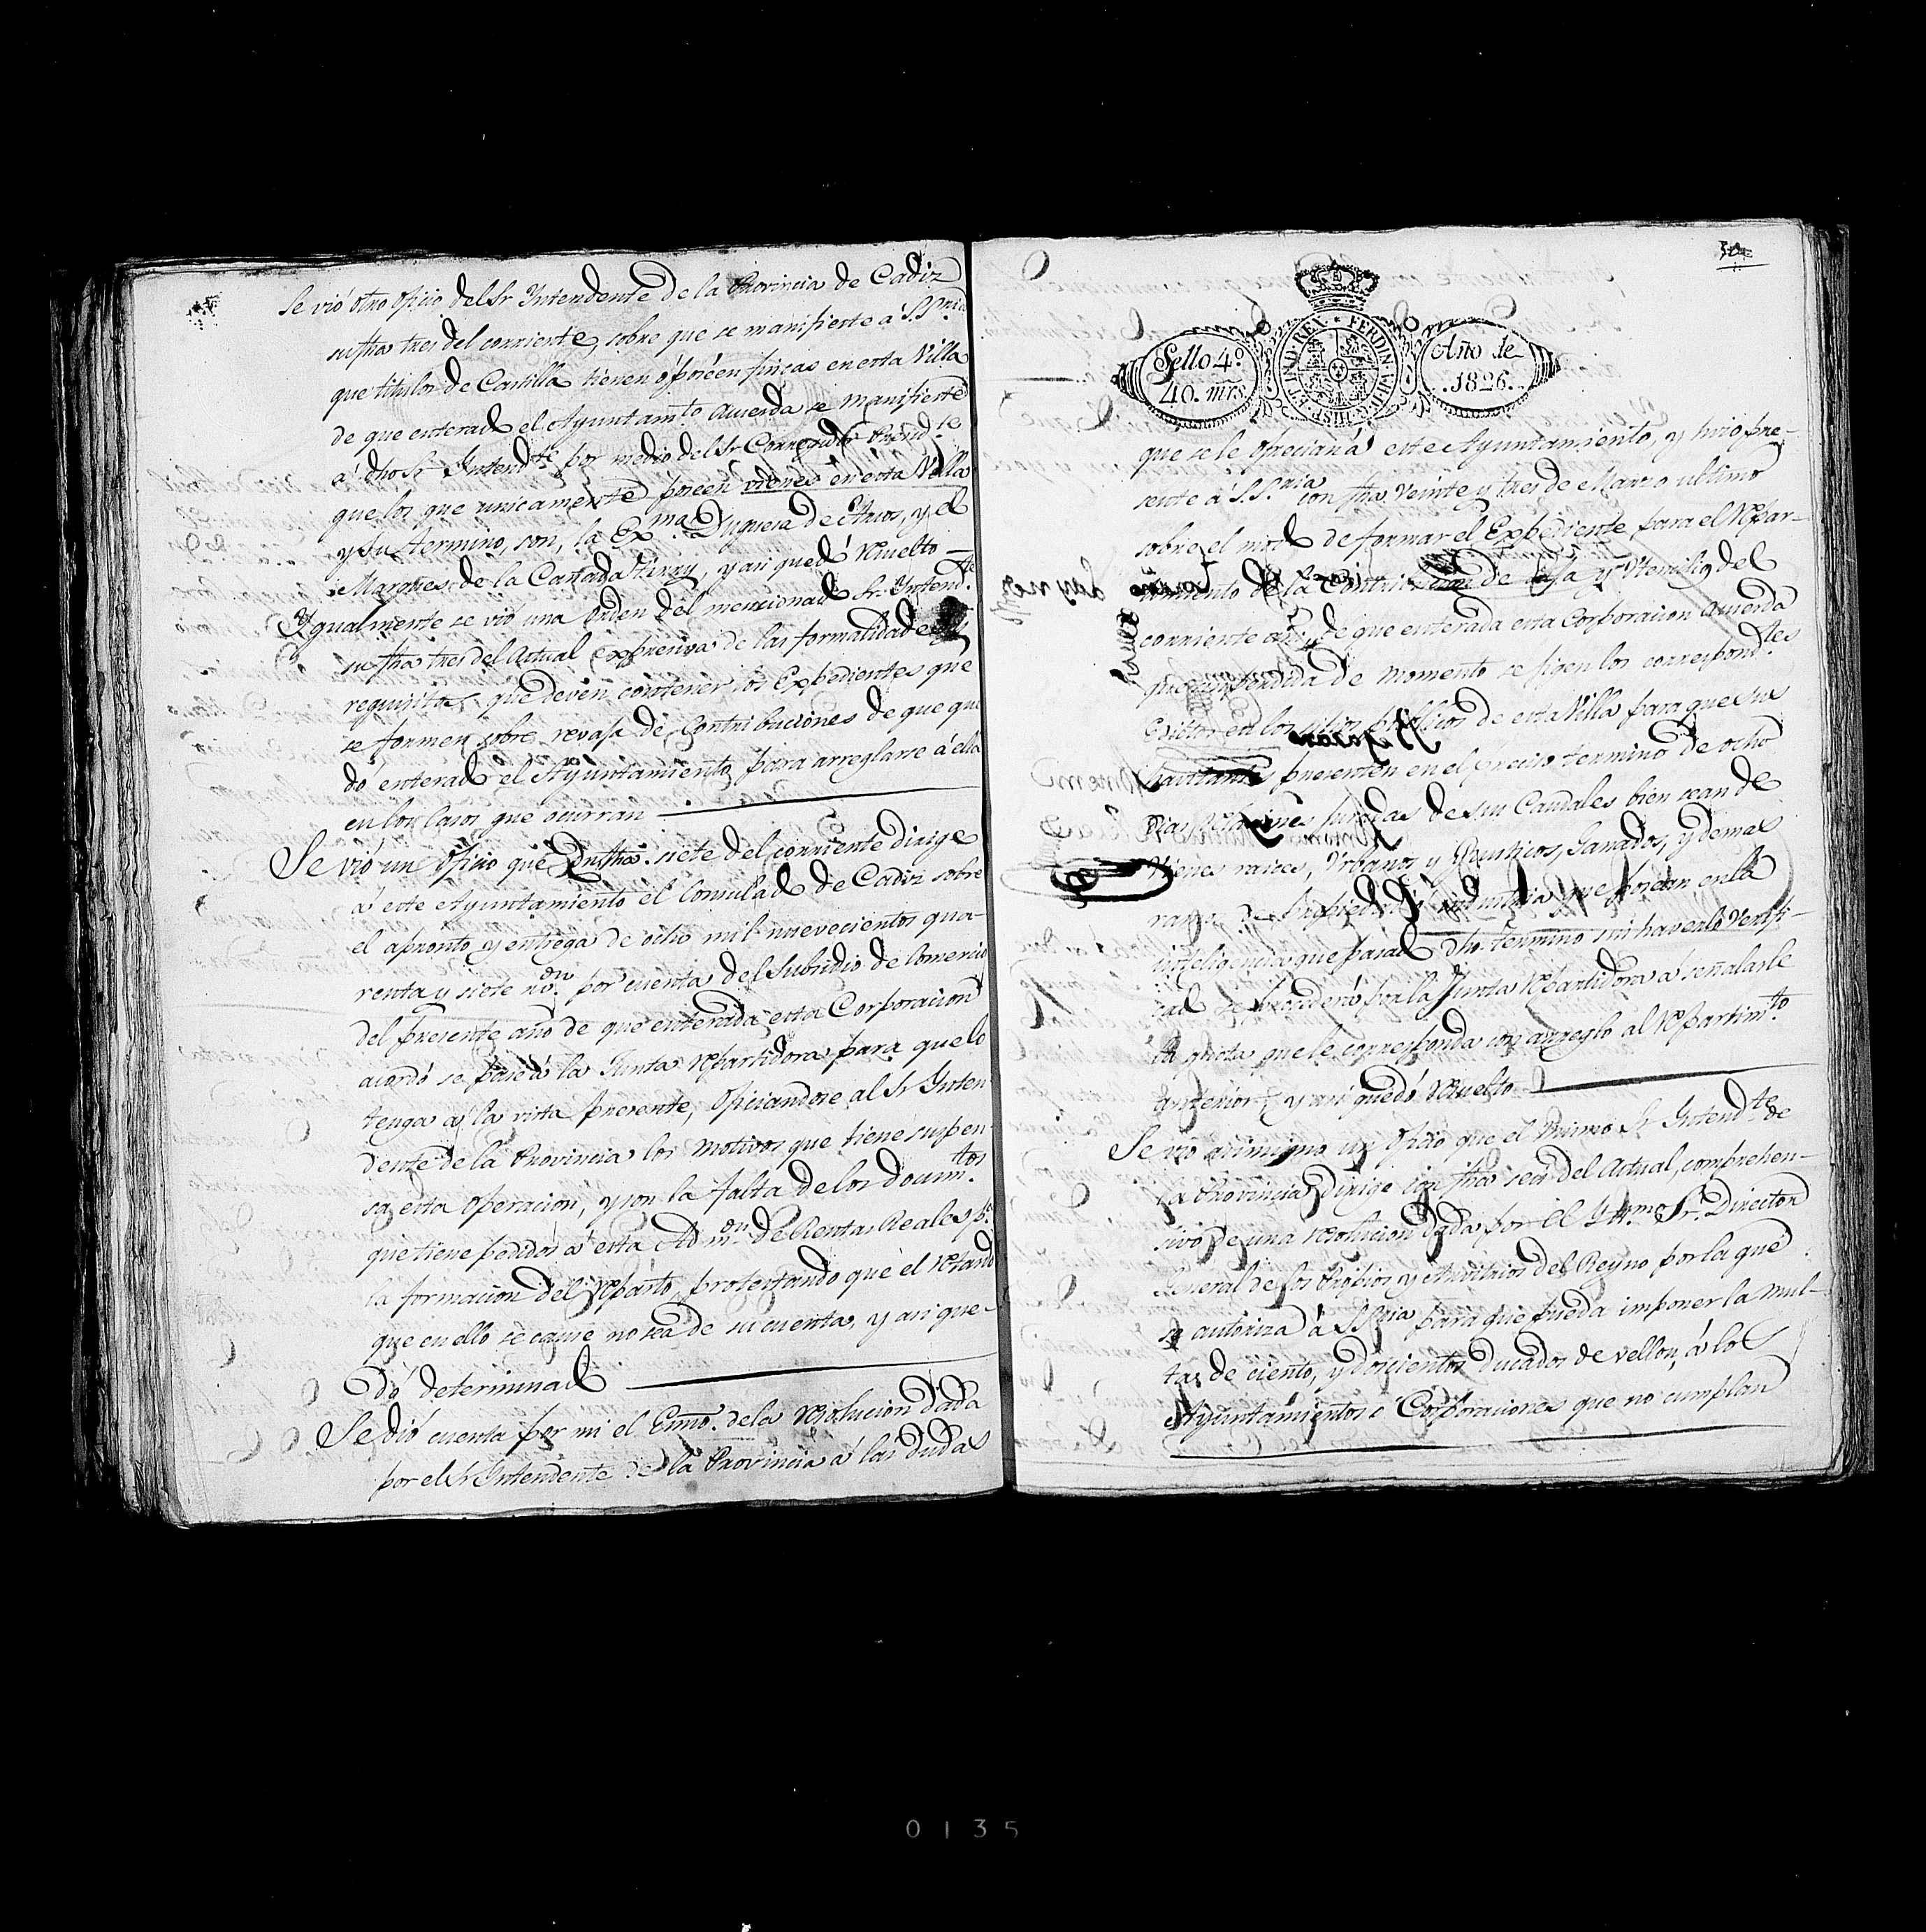 Se vió otro oficio del Sr Yntendente de la Provincia de Cadiz
su fha tres del corriente, sobre que se manifieste á S.S.ria
que titulos de Castilla tienen ó poséen fincas en esta Villa
de que enterado el Ayuntam.to acuerda se manifieste
á dho Sr Yntend.te por medio del Sr Corregidor Presid.te
que los que unicamente poséen vienes en esta Villa
y su termino, son, la Ex.ma Duquesa de Arcos, y el
Marques de la Cañada Tirry, y asi quedó resuelto
Ygualmente se vió una orden del mencionado Sr. Yntend.te
su fha tres del Actual expresiva de las formalidades y
requisitos que deven contener los Expedientes que
se formen sobre revaja de Contribuciones de que que
dó enterado el Ayuntamiento para arreglarse á ella
en los casos que ocurran
Se vió un oficio que con fha. siete del corriente dirige
á este Ayuntamiento el Consulado de Cadiz sobre
el apronto y entrega de ocho mil nuevecientos qua-
renta y siete r.on por cuenta del Subsidio de Comercio
del presente año de que enterada esta Corporacion
acordó se pase á la Junta repartidora para que lo
tenga á la vista presente, oficiandose al Sr Ynten
dente de la Provincia los motivos que tiene suspen
sa esta operacion, y son la falta de los docum.tos
que tiene pedidos á esta Adm.on de Rentas Reales p.a
la formacion del reparto, protestando que el retardo
que en ello se cause no sea de su cuenta, y asi que-
dó determinado
Se dió cuenta por mi el Essno. de la resolucion dada
por el Sr Yntendente de la Provincia á las dudas
Sello 4.º
40. mrs.
FERDIN. VII. D. G. HISP. ET IND. REX
Año de
1826.
que se le ofrecian á este Ayuntamiento, y hizo pre-
sente á S.S.ria con fha veinte y tres de Marzo ultimo
sobre el modo de formar el Expediente para el repar-
timiento de la Contribucion de Paja y Utensilios del
corriente año, de que enterada esta Corporacion acuerda
de momento se fijen los correspond.tes
Edictos en los sitios publicos de esta Villa para que sus
havitantes presenten en el preciso termino de ocho
dias relaciones juradas de sus Caudales bien sean de
vienes raices, Urbanos y Rusticos, Ganados, y demas
ramos de propiedad é industria que posean en la
inteligencia que pasado dho. termino sin haverlo verifi-
cado se procederá por la Junta repartidora á señalarle
la quota que le corresponda con arreglo al repartim.to
anterior, y asi quedó resuelto
Se vió asimismo un oficio que el mismo Sr Yntend.te de
la Provincia dirige con fha seis del Actual, comprehen-
sivo de una resolucion dada por el Yll.mo Sr. Director
General de los Propios y Arvitrios del Reyno por la que
se autoriza á S.S.ria para que pueda imponer la mul-
tas de ciento, y doscientos ducados de vellon, á los
Ayuntamientos ó Corporaciones que no cumplan
0135